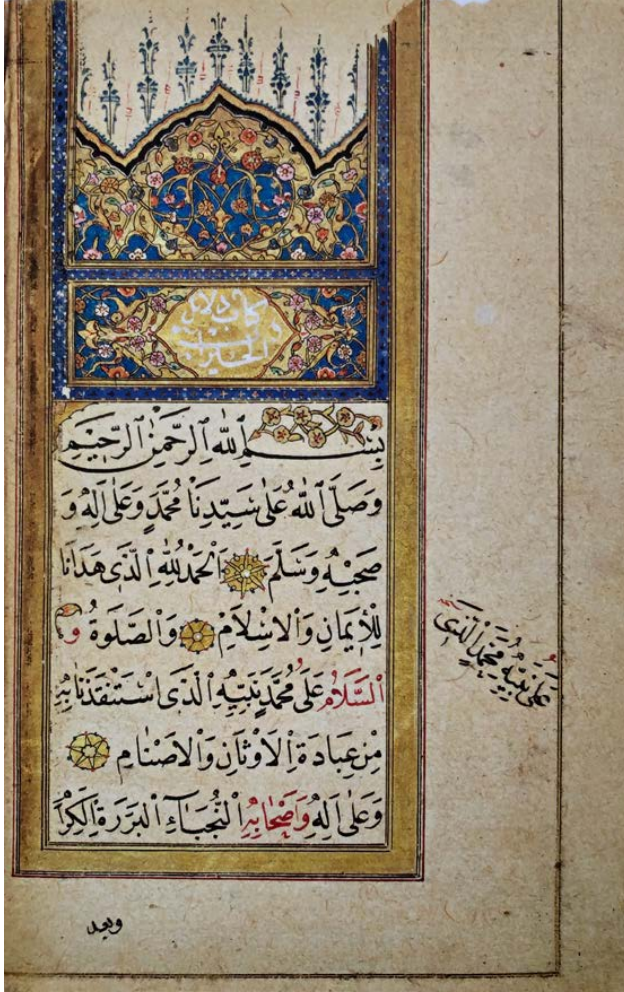 كتاب دلايل
الخيرات
بِسْمِ ٱللّٰهِ ٱلرَّحْمٰنِ ٱلرَّحِيمِ
وَصَلَّى ٱللّٰهُ عَلٰى سَيِّدِنَا مُحَمَّدٍ وَعَلٰى اٰلِهٖ وَ
صَحْبِهٖ وَسَلَّمَ ٱلْحَمْدُ لِلّٰهِ ٱلَّذٖى هَدَانَا
لِلْاٖيمَانِ وَالْاِسْلَامِ وَالصَّلٰوةُ وَ
ٱلسَّلَامُ عَلٰى مُحَمَّدٍ نَبِيِّهِ ٱلَّذٖى اسْتَنْقَذَنَا بِهٖ
مِنْ عِبَادَةِ ٱلْاَوْثَانِ وَٱلْاَصْنَامِ
وَعَلٰى اٰلِهٖ وَاَصْحَابِهِ ٱلنُّجَبَآءِ ٱلْبَرَرَةِ ٱلْكِرَا
عَلٰى نَبِيِّهٖ مُحَمَّدٍ ٱلَّذٖى
وبعد